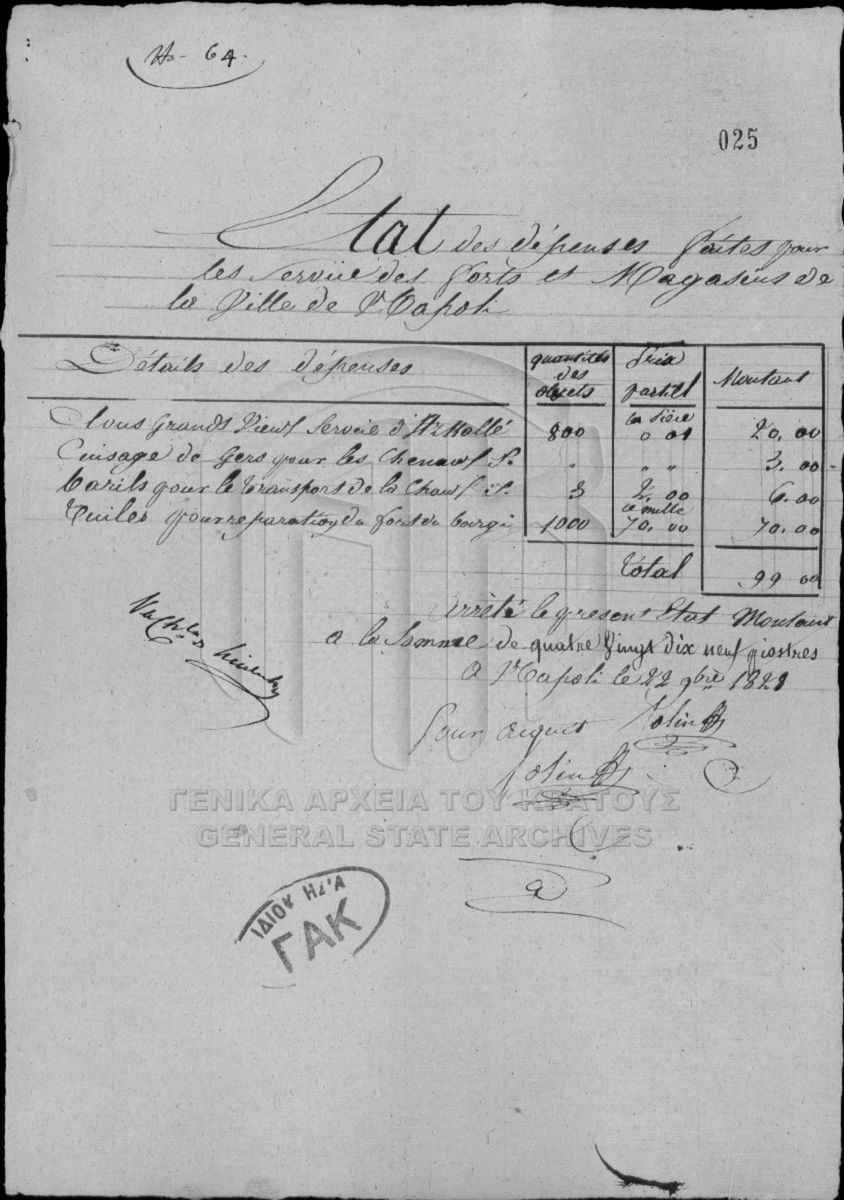 No 64.
025
Etat des dépenses faites pour
les Service des forts et Magasins de
la Ville de Napoli
Détails des dépenses
quantités des objets
Prix partiel
Montant
Clous Grands Vieux Service d' 800 la pièce 0 01 20.00
de pour les " " " 3.00
barils pour le transport de la Chaux 3 2.00 6.00
Tuiles pour reparation du fort du bourgi 1000 le mille 70.00 70.00
Total 99 00
Arrêté le present Etat Montant
a la Somme de quatre Vingt Dix neuf piastres
A Napoli le 22 9bre 1828
Pour acquit
ΓΕΝΙΚΑ ΑΡΧΕΙΑ ΤΟΥ ΚΡΑΤΟΥΣ
GENERAL STATE ARCHIVES
ΓΑΚ